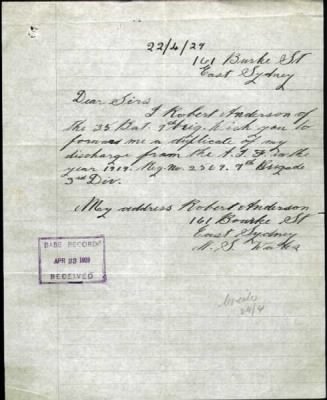 22/4/29
161 Burke St
East Sydney
Dear Sirs
I Robert Anderson of
the 35 Bat. 9th Brig. wish you to
forward me a duplicate of my
discharge from the A.I.F in the
year 1919. Reg. No. 2569. 9th Brigade
3rd Div.
My address Robert Anderson
161 Bourke St
East Sydney
N. S. Wales
BASE RECORDS
APR 23 1929
RECEIVED
24/4